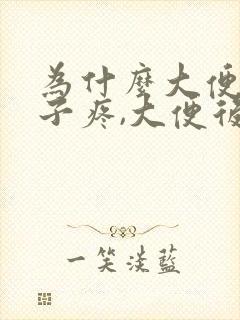 為什麼大便
子疼,大便後
一笑淡藍